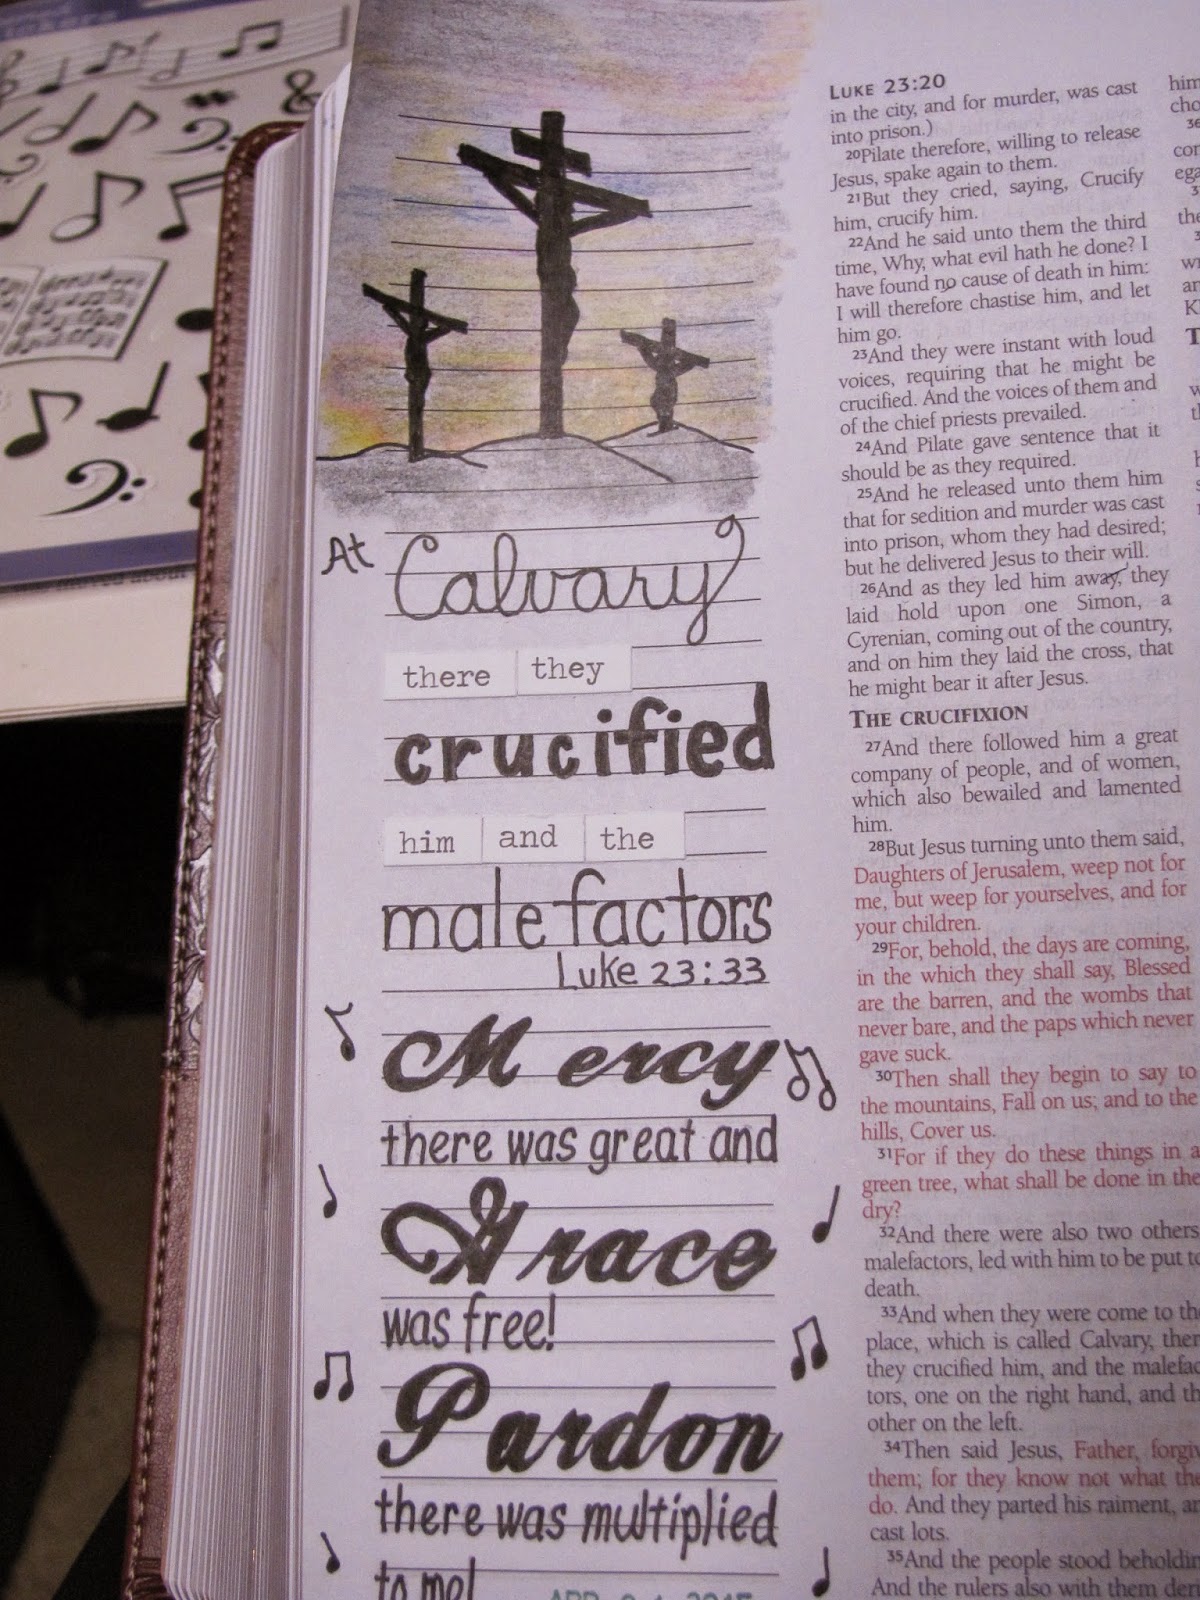 At Calvary
there they
crucified
him and the
malefactors
Luke 23:33
Mercy
there was great and
Grace
was free!
Pardon
there was multiplied
to me!
LUKE 23:20
in the city, and for murder, was cast
into prison.)
20Pilate therefore, willing to release
Jesus, spake again to them.
21But they cried, saying, Crucify
him, crucify him.
22And he said unto them the third
time, Why, what evil hath he done? I
have found no cause of death in him:
I will therefore chastise him, and let
him go.
23And they were instant with loud
voices, requiring that he might be
crucified. And the voices of them and
of the chief priests prevailed.
24And Pilate gave sentence that it
should be as they required.
25And he released unto them him
that for sedition and murder was cast
into prison, whom they had desired;
but he delivered Jesus to their will.
26And as they led him away, they
laid hold upon one Simon, a
Cyrenian, coming out of the country,
and on him they laid the cross, that
he might bear it after Jesus.
THE CRUCIFIXION
27And there followed him a great
company of people, and of women,
which also bewailed and lamented
him.
28But Jesus turning unto them said,
Daughters of Jerusalem, weep not for
me, but weep for yourselves, and for
your children.
29For, behold, the days are coming,
in the which they shall say, Blessed
are the barren, and the wombs that
never bare, and the paps which never
gave suck.
30Then shall they begin to say to
the mountains, Fall on us; and to the
hills, Cover us.
31For if they do these things in a
green tree, what shall be done in the
dry?
32And there were also two others,
malefactors, led with him to be put to
death.
33And when they were come to the
place, which is called Calvary, there
they crucified him, and the malefac-
tors, one on the right hand, and the
other on the left.
34Then said Jesus, Father, forgiv
them; for they know not what the
do. And they parted his raiment, an
cast lots.
35And the people stood beholdin
And the rulers also with them deri
him